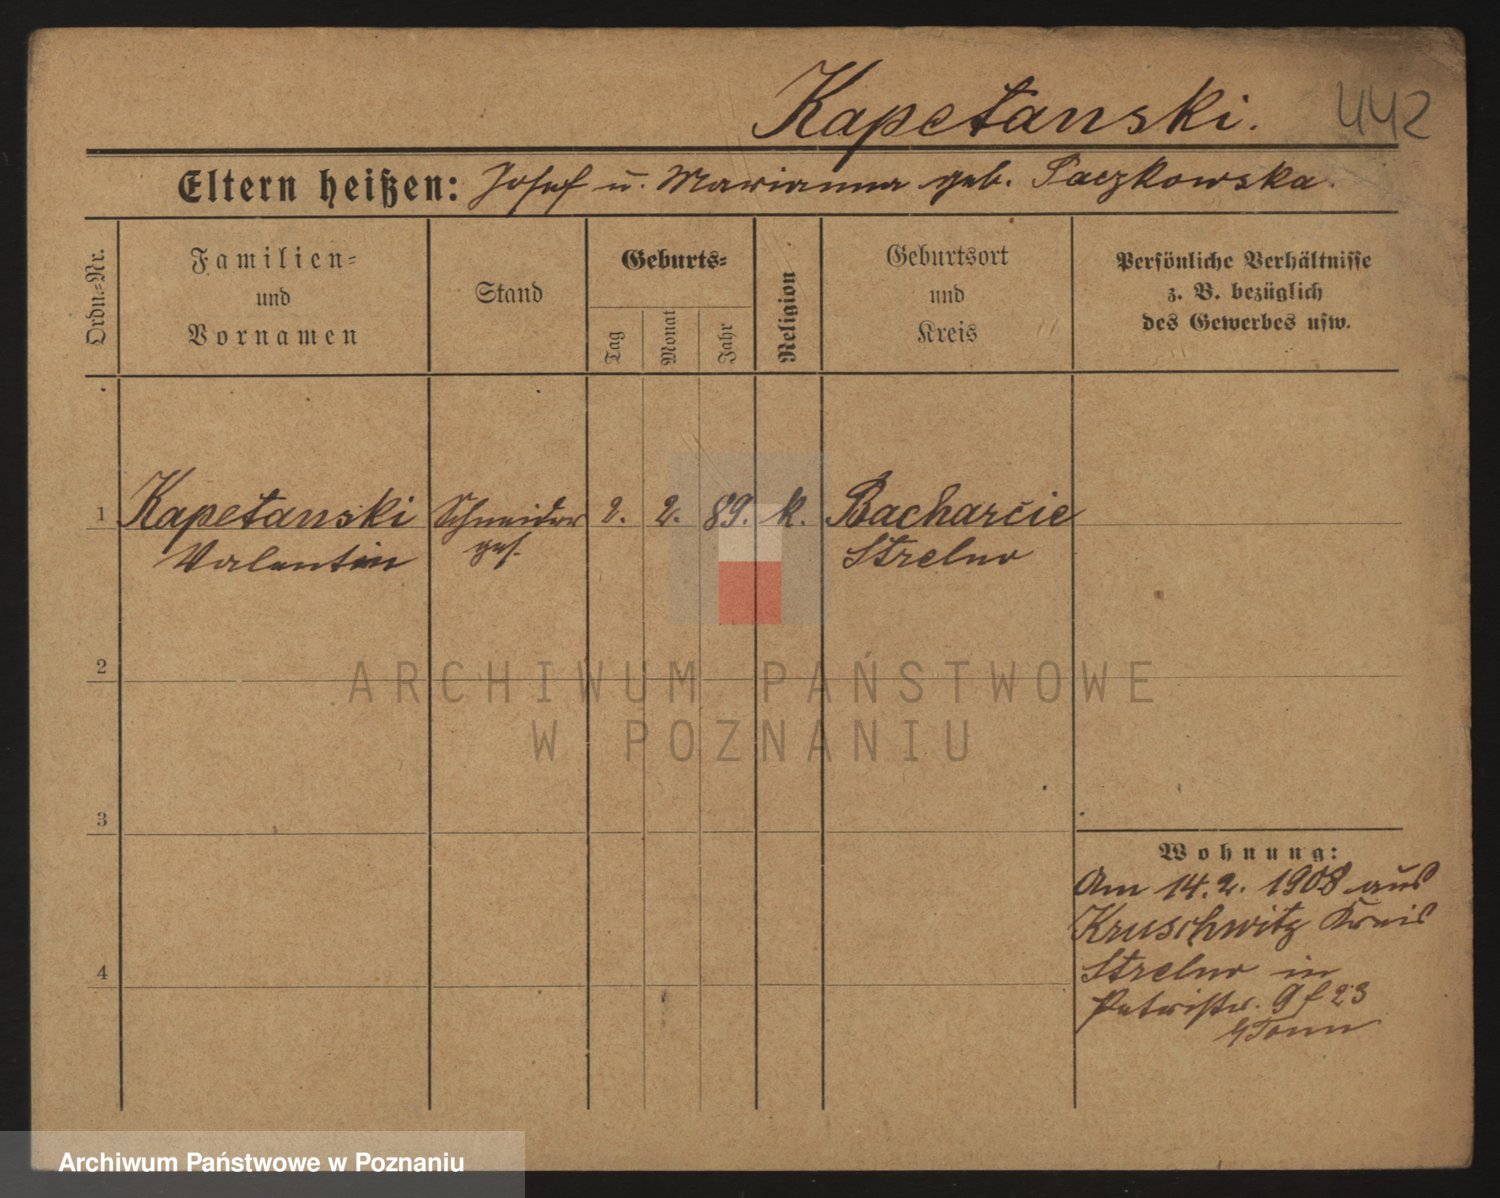 Kapetanski. 442
Eltern heißen: Josef u. Marianna geb. Paczkowska.
Ordn.-Nr.
Familien-
und
Vornamen
Stand
Geburts-
Tag
Monat
Jahr
Religion
Geburtsort
und
Kreis
Persönliche Verhältnisse
z. B. bezüglich
des Gewerbes usw.
1 Kapetanski Schneider 2. 2. 89. k. Bacharcie
Valentin ges. Strelno
2
3
4
Wohnung:
Am 14.2. 1908 aus
Kruschwitz Kreis
Strelno in
Petristr. 9 f 23
ARCHIWUM PAŃSTWOWE
W POZNANIU
Archiwum Państwowe w Poznaniu